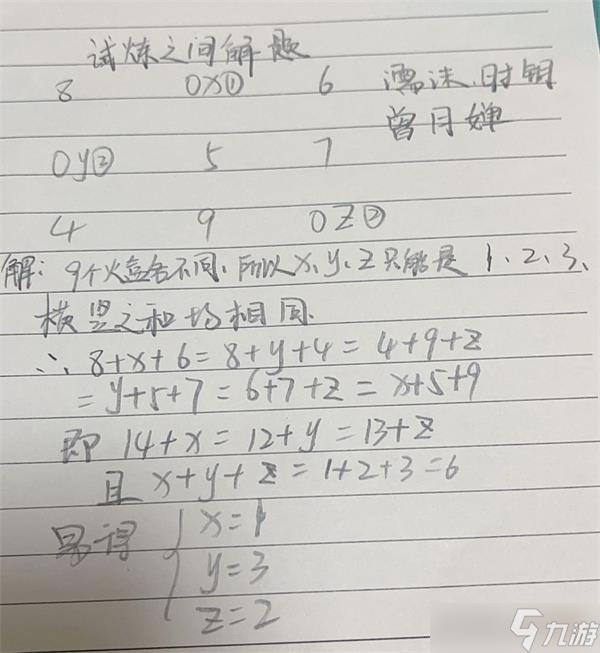 试炼之间解题
8 0x① 6 濡沫、时钥
曾月婵
0y② 5 7
4 9 0z②
解：9个火盒各不同，所以x、y、z只能是1、2、3、
横竖之和均相同
∴8+x+6=8+y+4=4+9+z
=y+5+7=6+7+z=x+5+9
即 14+x=12+y=13+z
且 x+y+z=1+2+3=6
易得 { x=1
y=3
z=2
九游